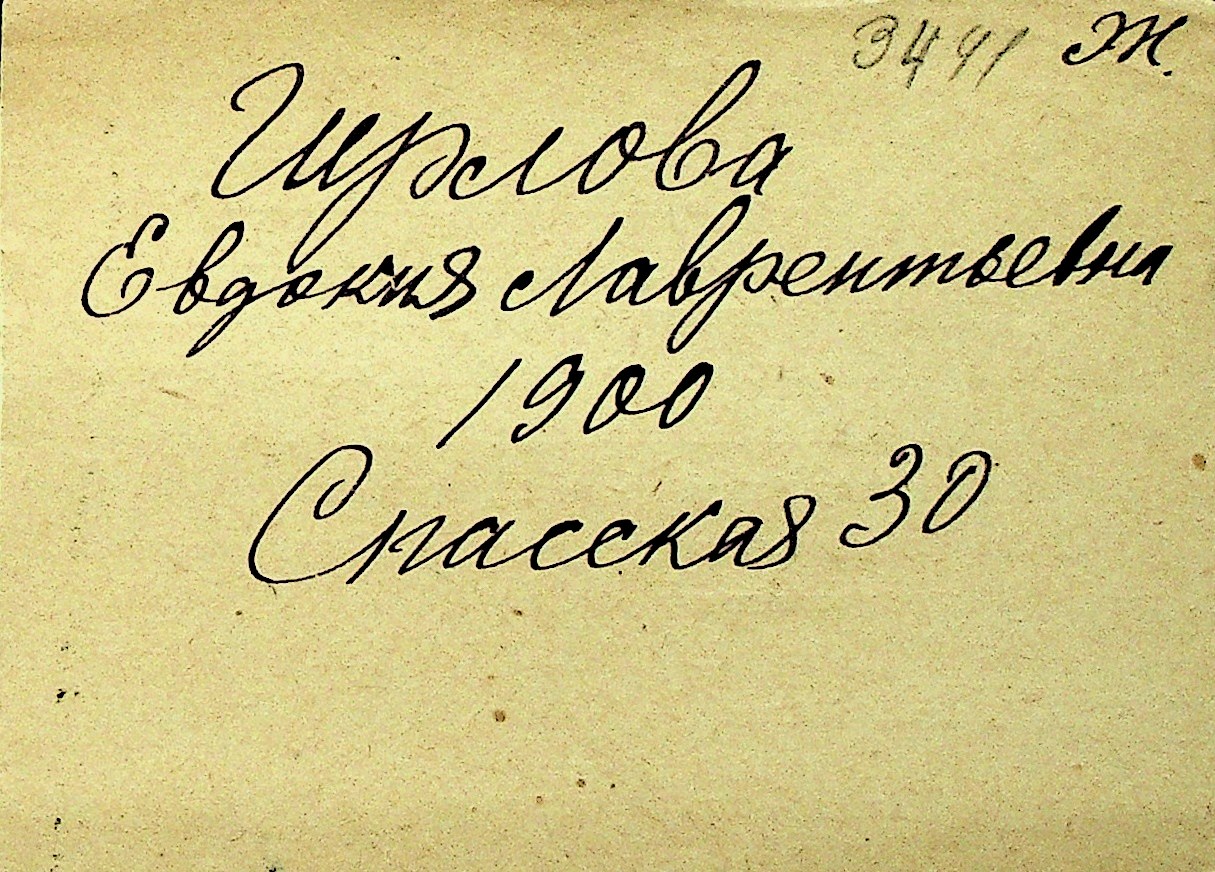 3491 Ж.
Шрлова
Евдокия Лаврентьевна
1900
Спасская 30